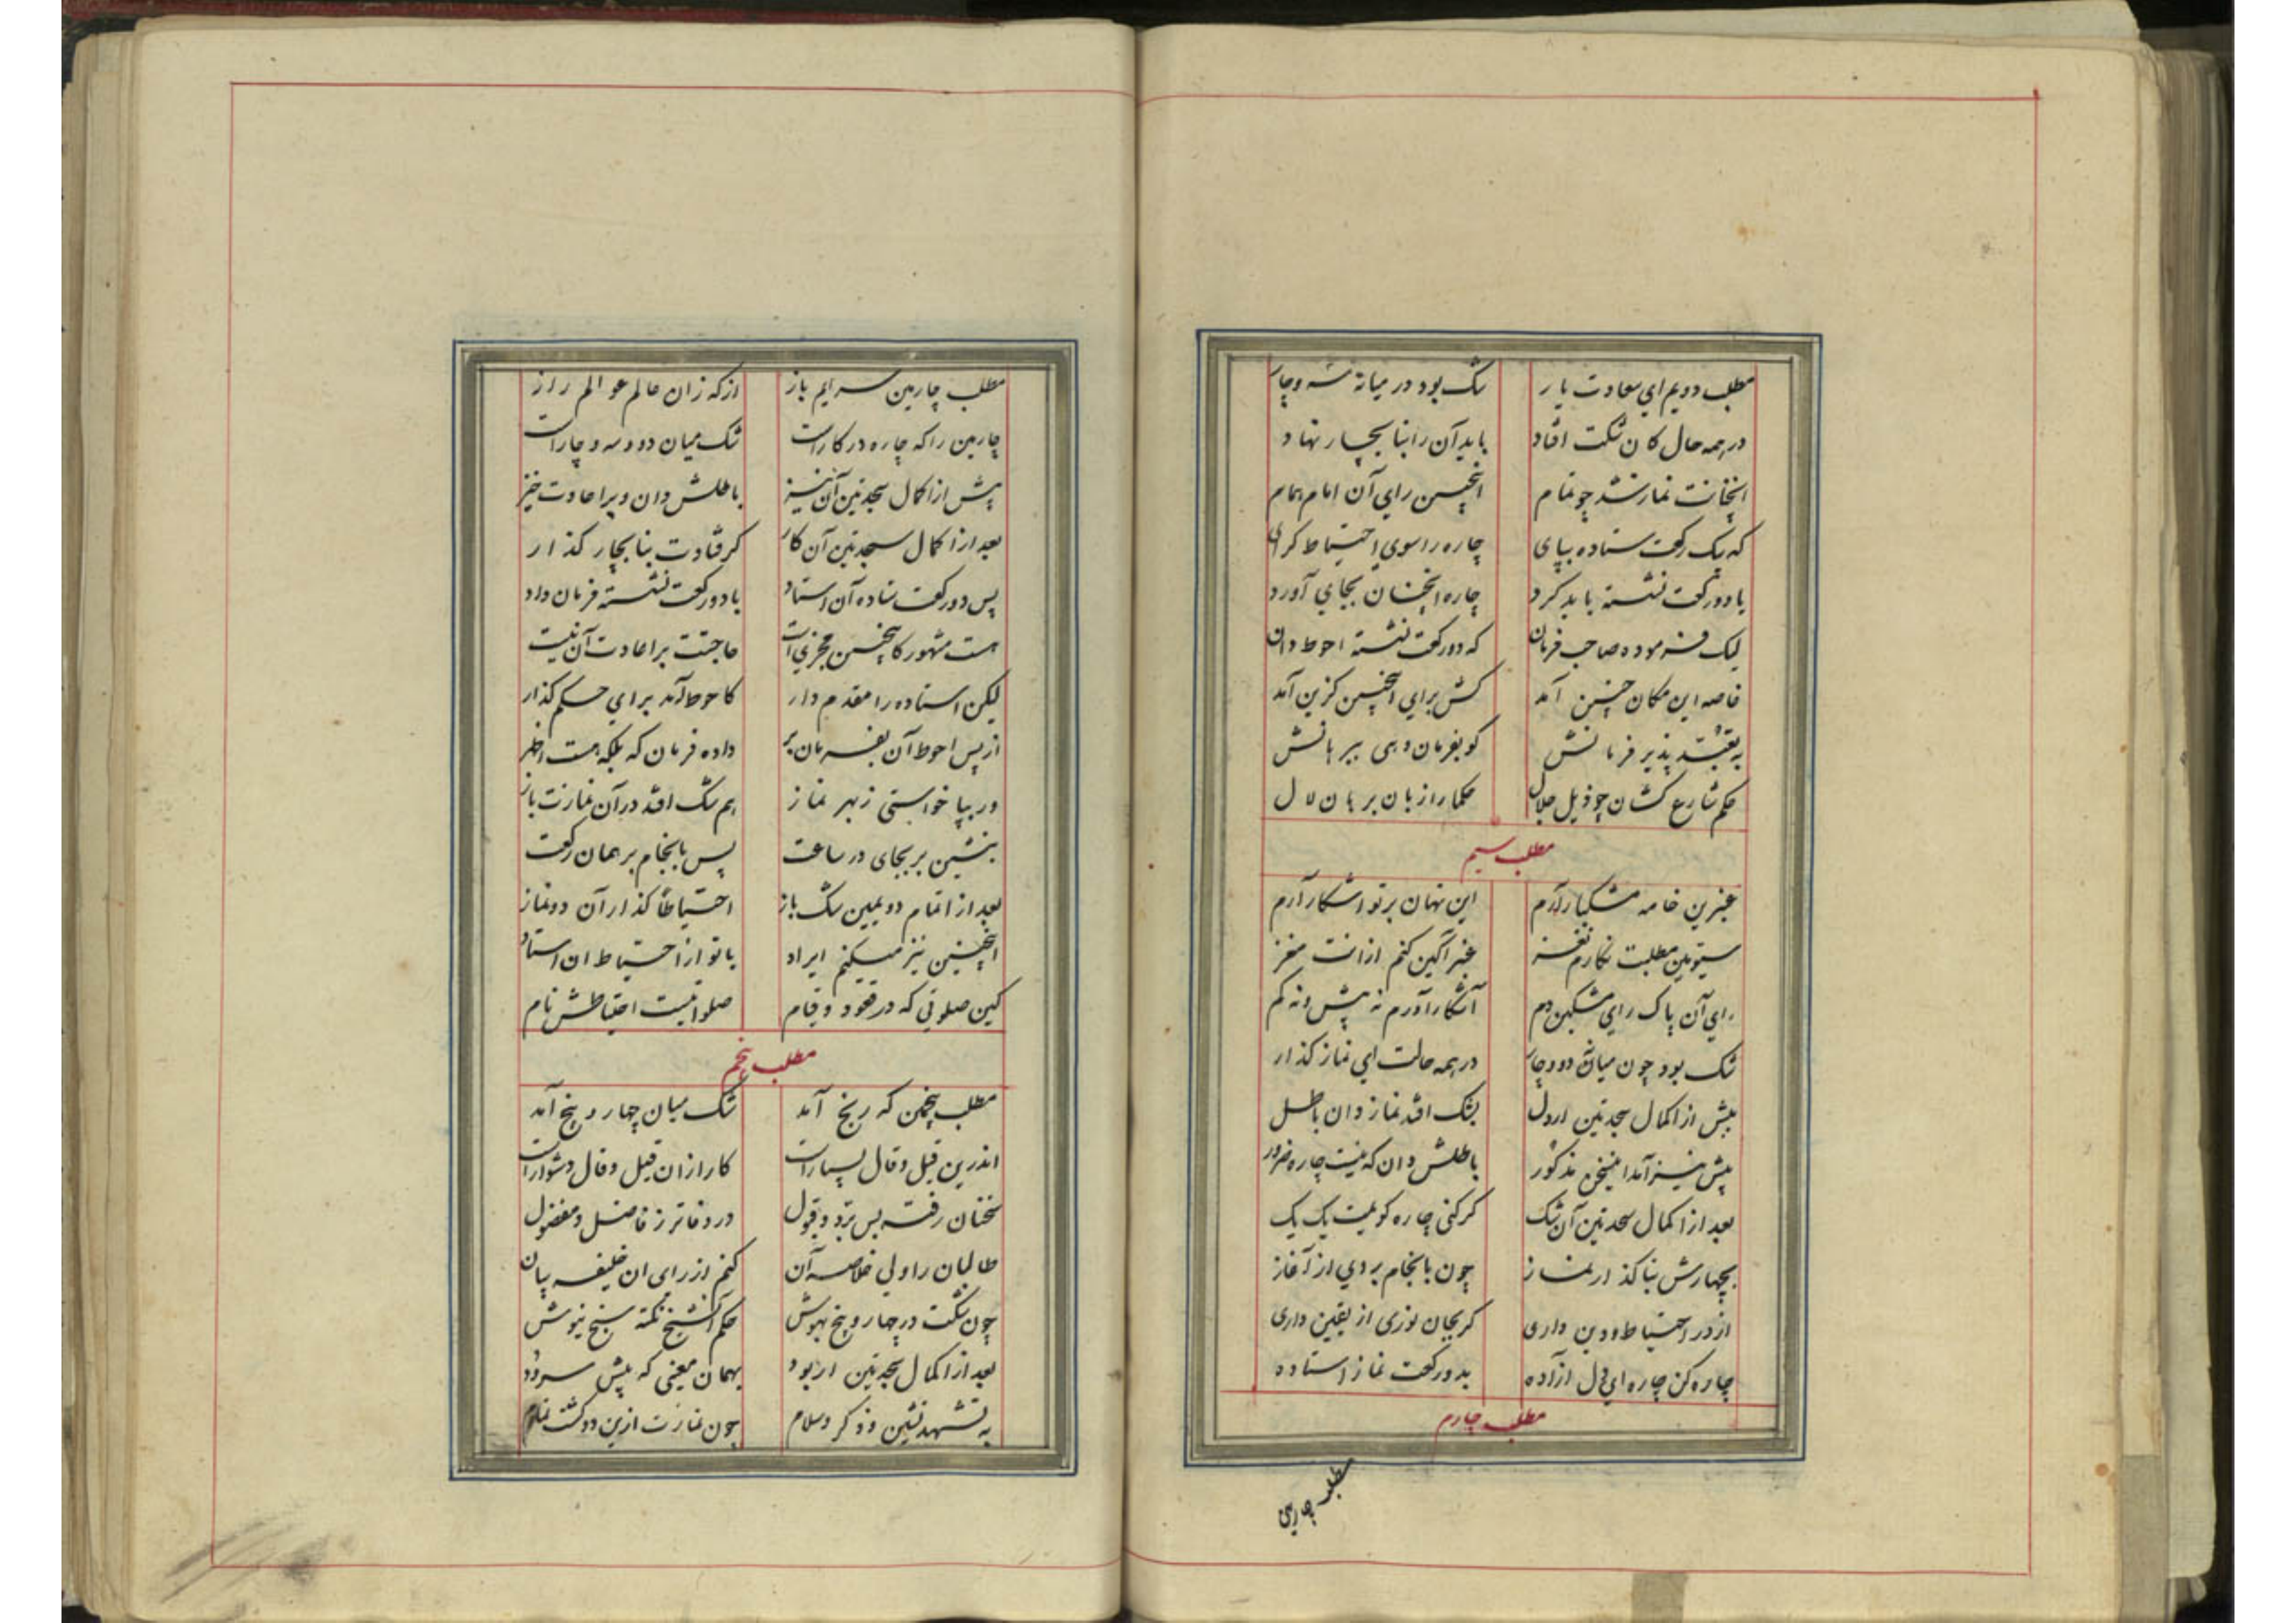 مطلب دویم ای سعادت یار شک بود در میانهٔ سه و چار
در همه حال کان شکت افتاد باید آن را بنا بچار نهاد
اینچنانت نماز شد چو تمام اینچنین رای آن امام همام
که یک رکعت ستاده بپای چاره را سوی احتیاط گرای
یا دو رکعت نشسته باید کرد چاره اینچنان بجای آورد
لیک فرموده صاحب فرمان که دو رکعت نشسته احوط دان
خاصه این مکان چنین آمد کش برای اینچنین گزین آمد
پذیر فرمانش کو بفرمان دهی ببرهانش
حکم شارع کشان چو ذیل جلال حکما را زبان برهان لال
مطلب سیم
عنبرین خامه مشکبار آرم این نهان بر تو آشکار آرم
سیومین مطلبت نگارم نغز عنبر آگین کنم ازانت مغز
رای آن پاک رای مشکین دم آشکار آورم نه بیش و نه کم
شک بود چون میانهٔ دو و چار در همه حالت ای نماز گذار
پیش از اکمال سجدتین ار دل بشک افتد نماز دان باطل
پیش نیز آمد اینسخن مذکور باطلش دان که نیست چاره ضرور
بعد از اکمال سجدتین آن شک گر کنی چاره گویمت یک یک
بچهارش بنا گذار نماز چون بانجام بردی از آغاز
از در احتیاط و دین داری گر بجان نوری از یقین داری
چاره کن چاره ای دل آزاده بدو رکعت نماز استاده
مطلب چارم
مطلب چارمین
مطلب چارمین سرایم باز از که زان عالم عوالم راز
چارمین را که چاره در کارست شک میان دو و سه و چارست
پیش از اکمال سجدتین آن نیز باطلش دان و بر اعادت خیز
بعد از اکمال سجدتین آن کار گر فتادت بنا بچار گذار
پس دو رکعت ستاده آن استاد با دو رکعت نشسته فرمان داد
هست مشهور کاینچنین مجزیست حاجتت بر اعادت آن نیست
لیکن استاده را مقدم دار کاحوط آمد برای حکم گذار
از پس احوط آن بفرمان بر داده فرمان که بلکه هست اظهر
ور بپا خواستی ز بهر نماز هم شک افتد در آن نمازت باز
بنشین بر بجای در ساعت پس بانجام بر همان رکعت
بعد از اتمام دویمین شک باز احتیاطاً گذار آن دو نماز
اینچنین نیز میکنم ایراد با تو از احتیاط آن استاد
کین صلوتی که در قعود و قیام صلواتیست احتیاطش نام
مطلب پنجم
مطلب پنجمین که رنج آمد شک میان چهار و پنج آمد
اندرین قیل و قال بسیارست کار ازان قیل و قال دشوارست
سخنان رفته بس برد و قبول در دفاتر ز فاضل و مفضول
طالبان را ولی خلاصه آن کنم از رای آن خلیفه بیان
چون شکت در چهار و پنج بهوش حکم آنشیخ نکته سنج نیوش
بعد از اکمال سجدتین ار بود بهمان معنی که پیش سرود
به تشهد نشین و ذکر و سلام چون نمازت ازین دو گشت تمام